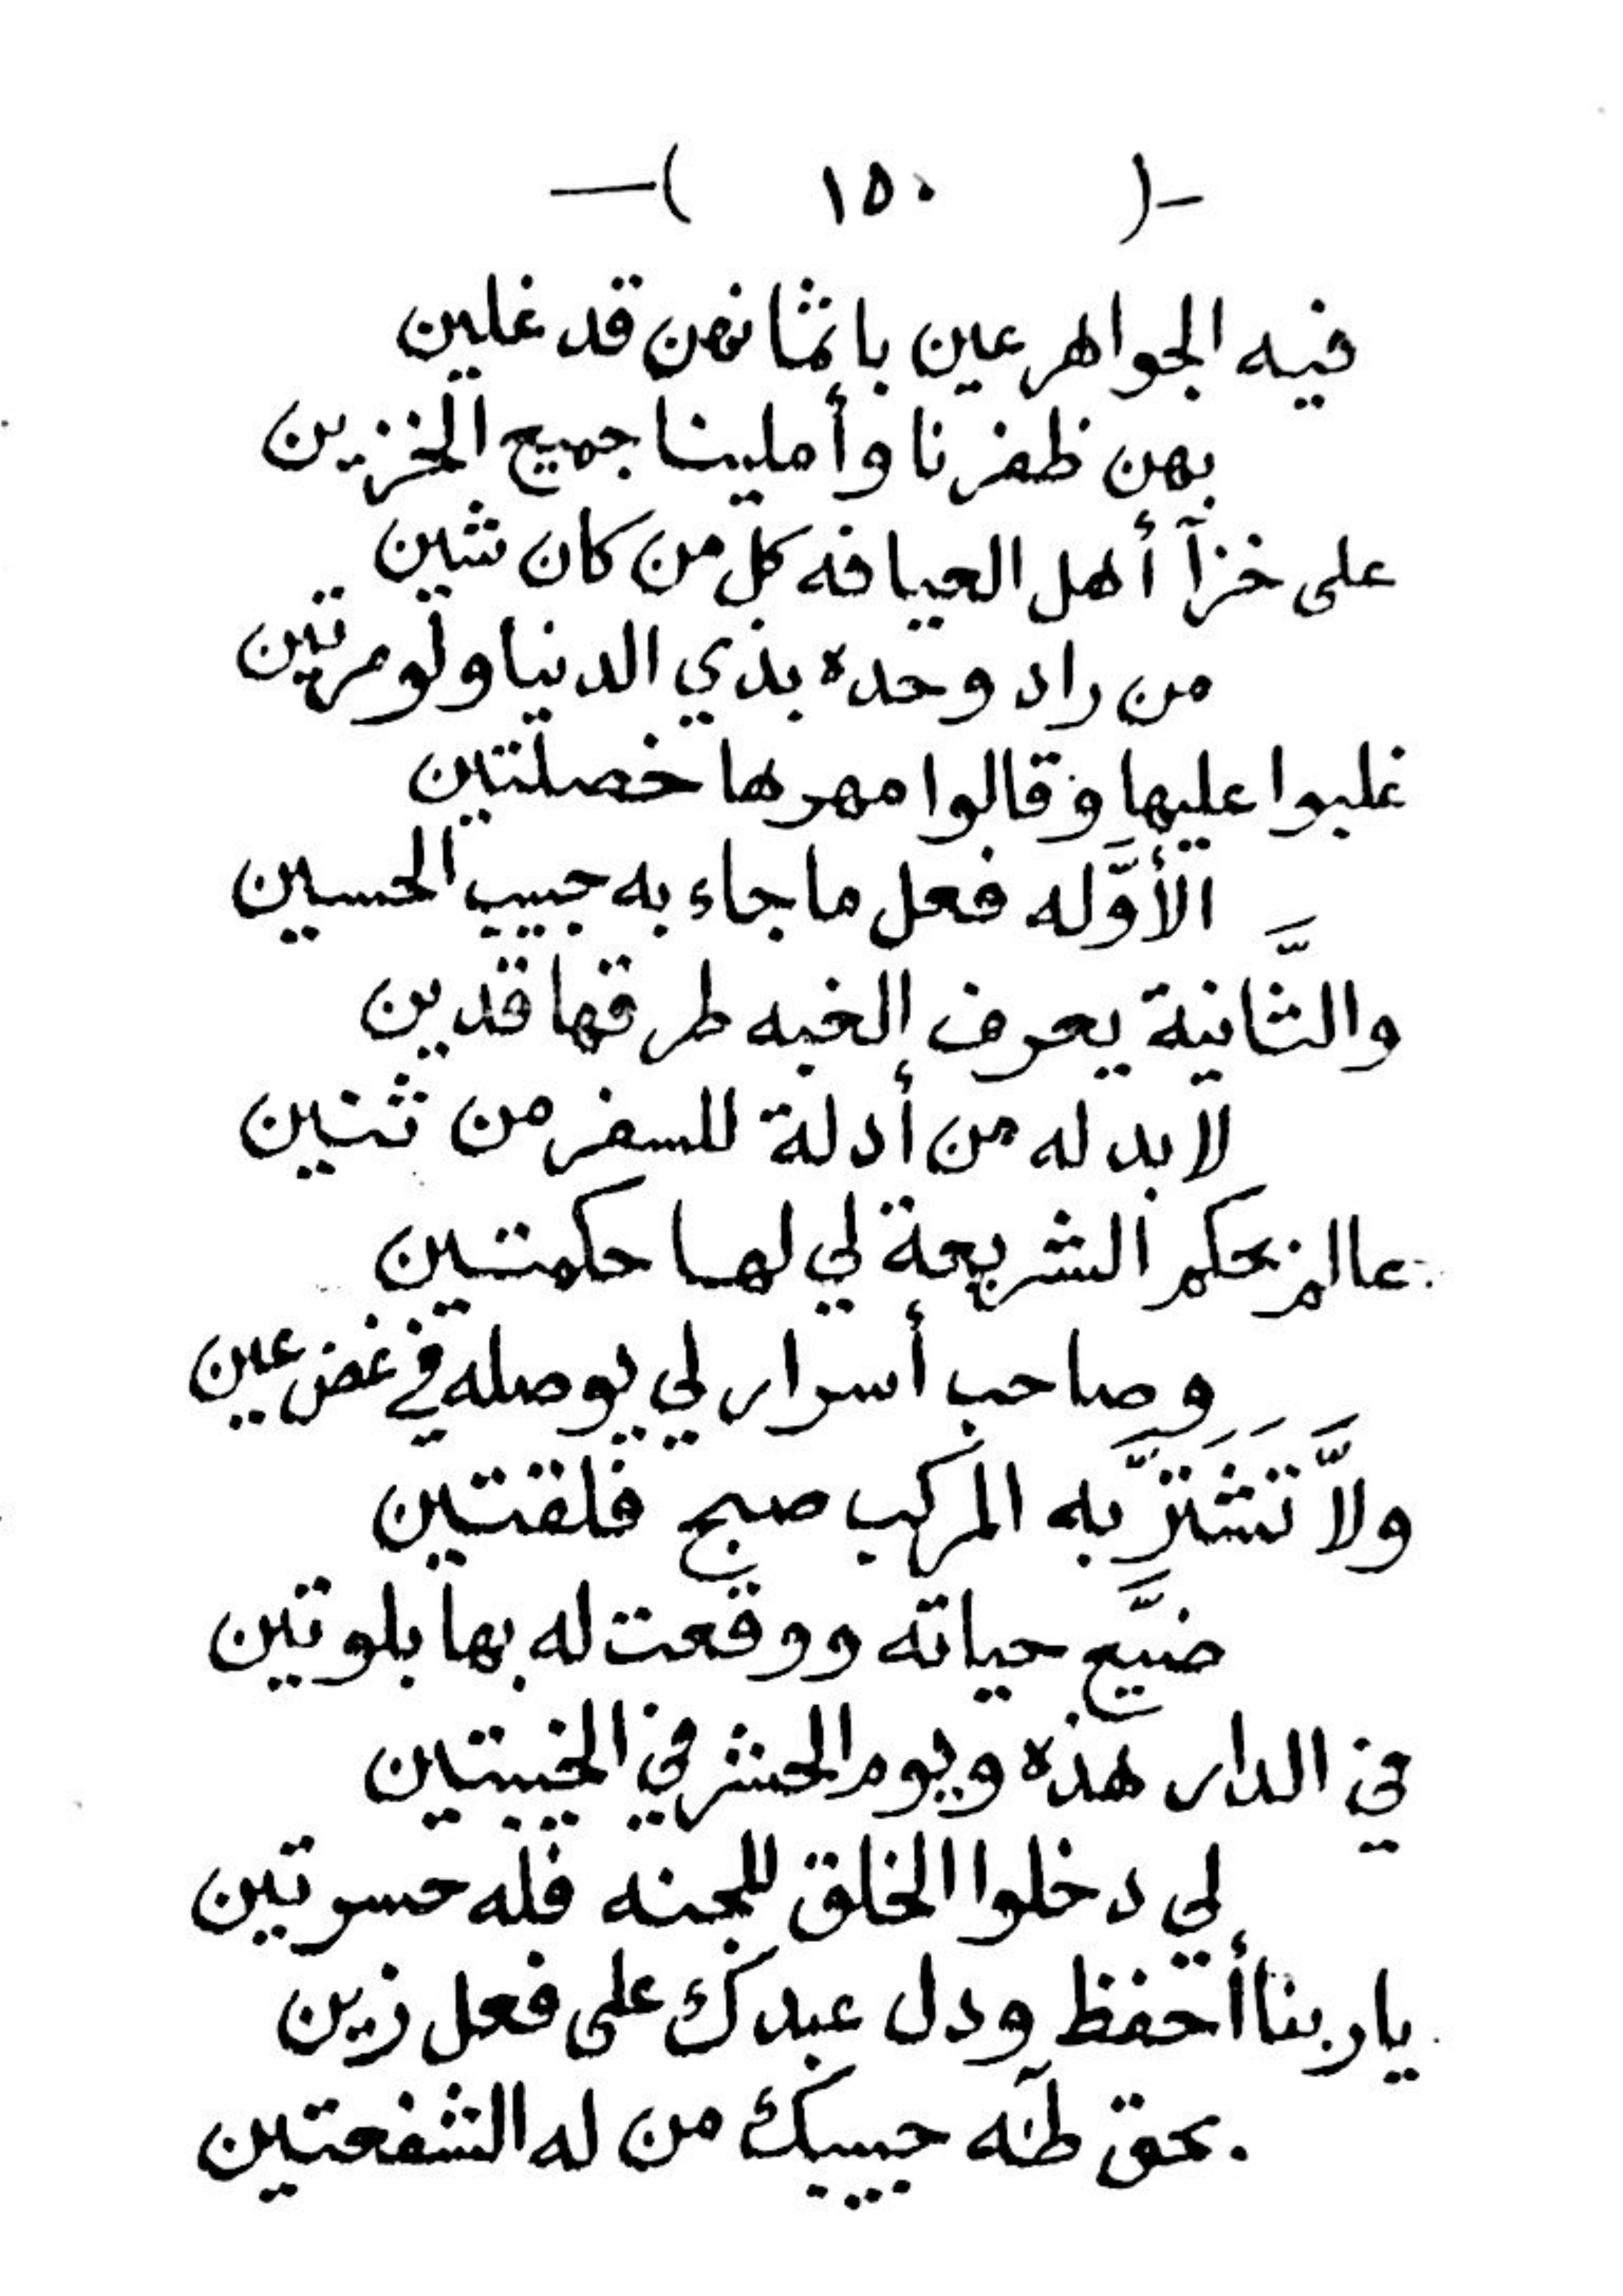 -( ١٥٠ )-
فيه الجواهر عين باثمانهن قد غلين
بهن ظفرنا وأملينا جميع الخزين
على خزآ أهل العيافه كل من كان شين
من راد وحده بذي الدنيا ولو مرتين
غلبوا عليها وقالوا مهرها خصلتين
الأوَّله فعل ما جاء به حبيب الحسين
والثَّانية يعرف الخبه طرقها قدين
لا بد له من أدلة للسفر من ثنين
عالم بحكم الشريعة لي لها حكمتين
وصاحب أسرار لي يوصله في غض عين
ولاَّ تَشَتَرَّ به المركب صبح فلقتين
ضيَّع حياته ووقعت له بها بلوتين
في الدار هذه ويوم الحشر في الخيبتين
لي دخلوا الخلق للجنه فله حسرتين
يا ربنا أحفظ ودل عبدك على فعل زين
بحق طٰه حبيبك من له الشفعتين